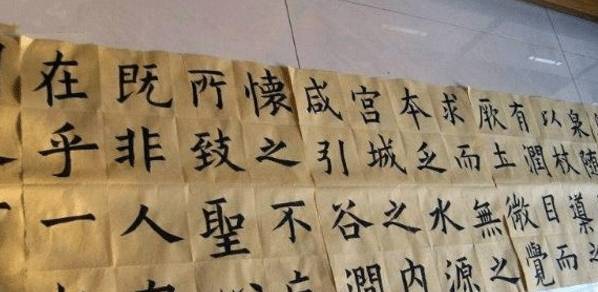 在乎一
既非人
所致聖
懷之不
咸引谷澗
宮城之內
本乏水源
求而無之
厥土微覺
有潤目而
以杖導之
泉隨